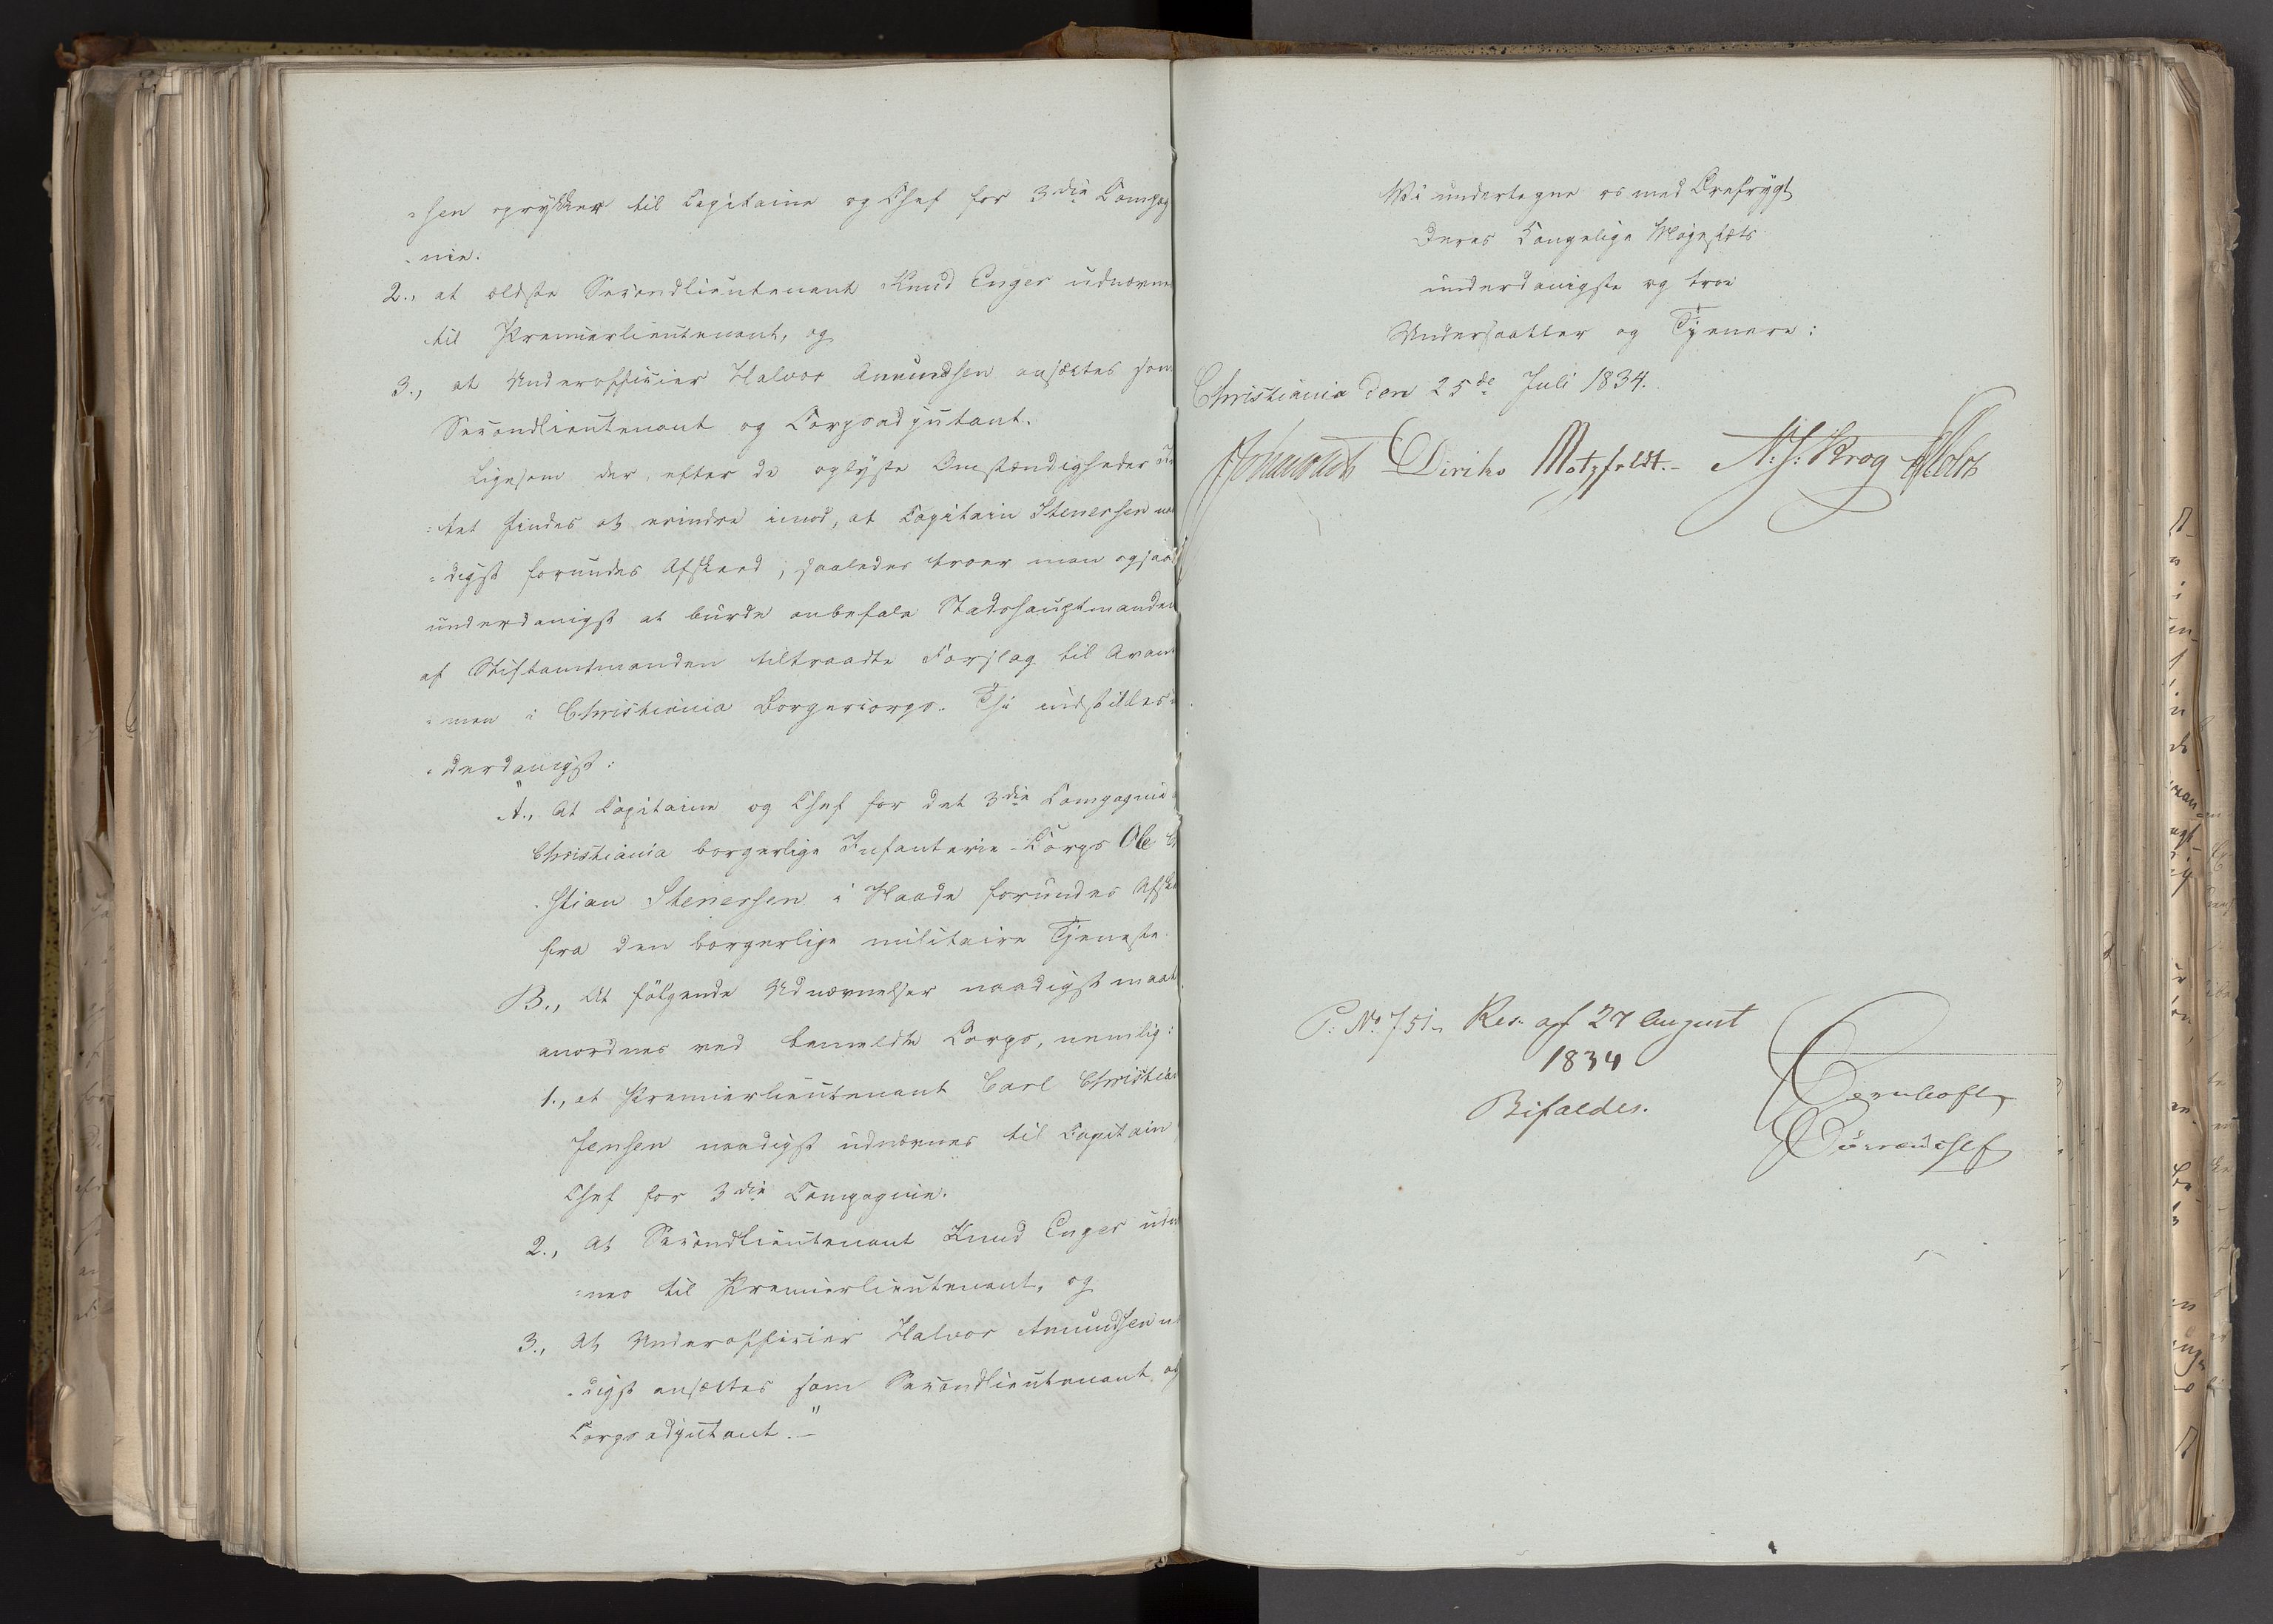 =sen oprykker til Capitaine og Chef for 3die Compag
=nie.
2., at ældste Secondlieutenant Knud Enger udnævnes
til Premierlieutenant, og
3., at Underofficier Halvor Amundsen ansættes som
Secondlieutenant og Corpsadjutant.
Ligesom der, efter de oplyste Omstændigheder in
=tet findes at erindre imod, at Capitain Stenersen naa
=digst forundes Afskeed; saaledes troer man ogsaa
underdanigst at burde anbefale Stadshauptmandens
af Stiftamtmanden tiltraadte Forslag til Avance
=men i Christiania Borgercorps. Thi indstilles un
=derdanigst:
"A., At Capitaine og Chef for det 3die Compagnie
Christiania borgerlige Infanterie-Corps Ole Chri
=stian Stenersen i Naade forundes Afskeed
fra den borgerlige militaire Tjeneste.
B., At følgende Udnævnelser naadigst maae
anordnes ved bemeldte Corps, nemlig:
1., at Premierlieutenant Carl Christian
Jensen naadigst udnævnes til Capitain
Chef for 3die Compagnie.
2., at Secondlieutenant Knud Enger udnæv
=nes til Premierlieutenant, og
3., at Underofficier Halvor Amundsen naa
=digst ansættes som Secondlieutenant og
Corpsadjutant."-
Vi undertegne os med Ærefrygt
Deres Kongelige Majestæts
underdanigste og troe
Undersaatter og Tjenere:
Christiania den 25de Juli 1834.
Diriks Motzfeldt.- N: J: Krog Holst
P: No. 751. Res. af 27 August
1834
Bifaldes.